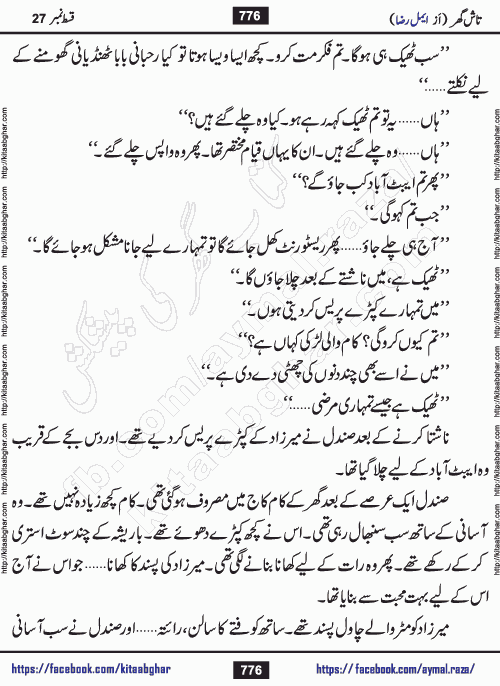 تاش گھر (از ایمل رضا) 776 قسط نمبر 27
’’سب ٹھیک ہی ہوگا۔ تم فکر مت کرو۔ کچھ ایسا ویسا ہوتا تو کیا رحبانی بابا ٹھنڈیانی گھومنے کے
لیے نکلتے......‘‘
’’ہاں...... یہ تو تم ٹھیک کہہ رہے ہو۔ کیا وہ چلے گئے ہیں؟‘‘
’’ہاں...... وہ چلے گئے ہیں۔ ان کا یہاں قیام مختصر تھا۔ پھر وہ واپس چلے گئے۔‘‘
’’پھر تم ایبٹ آباد کب جاؤ گے؟‘‘
’’جب تم کہو گی۔‘‘
’’آج ہی چلے جاؤ...... پھر ریسٹورنٹ کھل جائے گا تو تمہارے لیے جانا مشکل ہو جائے گا۔‘‘
’’ٹھیک ہے، میں ناشتے کے بعد چلا جاؤں گا۔‘‘
’’میں تمہارے کپڑے پریس کر دیتی ہوں۔‘‘
’’تم کیوں کرو گی؟ کام والی لڑکی کہاں ہے؟‘‘
’’میں نے اسے بھی چند دنوں کی چھٹی دے دی ہے۔‘‘
’’ٹھیک ہے جیسے تمہاری مرضی......‘‘
ناشتا کرنے کے بعد صندل نے میرزاد کے کپڑے پریس کر دیے تھے۔ اور دس بجے کے قریب
وہ ایبٹ آباد کے لیے چلا گیا تھا۔
صندل ایک عرصے کے بعد گھر کے کام کاج میں مصروف ہو گئی تھی۔ کام کچھ زیادہ نہیں تھے۔ وہ
آسانی کے ساتھ سب سنبھال رہی تھی۔ اس نے کچھ کپڑے دھوئے تھے۔ باریشہ کے چند سوٹ استری
کر کے رکھے تھے۔ پھر وہ رات کے لیے کھانا بنانے لگی تھی۔ میرزاد کی پسند کا کھانا...... جو اس نے آج
اس کے لیے بہت محبت سے بنایا تھا۔
میرزاد کو مٹر والے چاول پسند تھے۔ ساتھ کوفتے کا سالن، رائتہ...... اور صندل نے سب آسانی
https://facebook.com/kitaabghar 776 https://facebook.com/aymal.raza/
http://kitaabghar.com http://kitaabghar.com http://kitaabghar.com http://kitaabghar.com http://kitaabghar.com http://kitaabghar.com
fb.com/aymal.raza/
kitaabghar.com